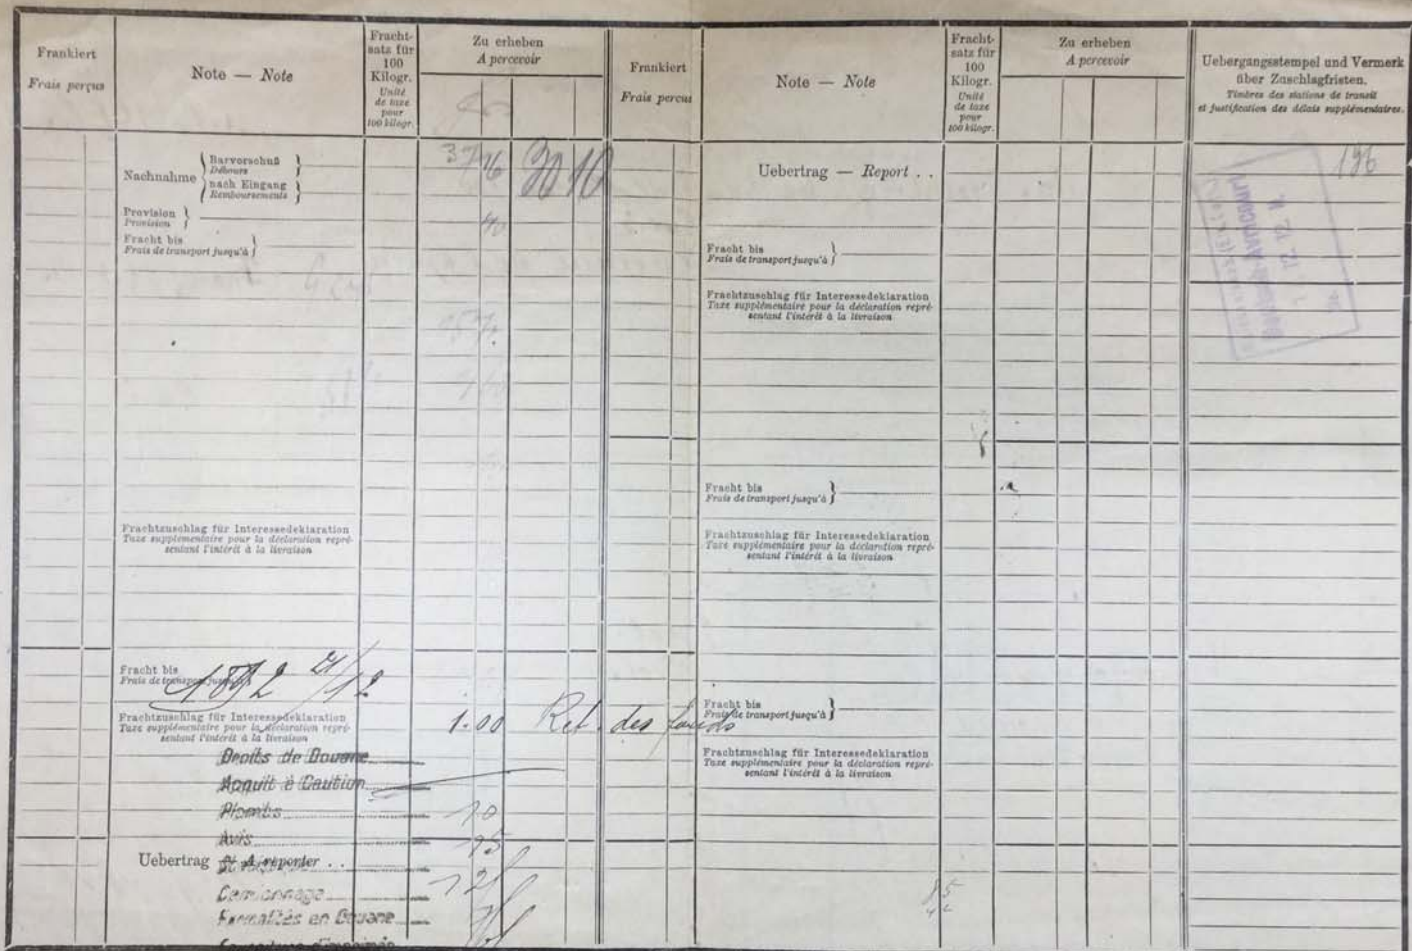 Frankiert
Frais perçus
Note — Note
Fracht-
satz für
100
Kilogr.
Unité
de taxe
pour
100 kilogr.
Zu erheben
A percevoir
Frankiert
Frais perçus
Note — Note
Fracht-
satz für
100
Kilogr.
Unité
de taxe
pour
100 kilogr.
Zu erheben
A percevoir
Uebergangsstempel und Vermerk
über Zuschlagfristen.
Timbres des stations de transit
et justification des délais supplémentaires.
Nachnahme { Barvorschuß }
Débours
{ nach Eingang }
Remboursements
37 76 30 10
Provision }
Provision
40
Fracht bis }
Frais de transport jusqu'à
Frachtzuschlag für Interessedeklaration
Taxe supplémentaire pour la déclaration repré-
sentant l'intérêt à la livraison
Fracht bis
Frais de transport jusqu'à
1892 21/12
Frachtzuschlag für Interessedeklaration
Taxe supplémentaire pour la déclaration repré-
sentant l'intérêt à la livraison
1.00 Ret. des fonds
Droits de Douane
Acquit à Caution
Plombs 10
Avis
Uebertrag A reporter . .
Camionnage
Formalités en Douane
Uebertrag — Report . .
Fracht bis }
Frais de transport jusqu'à
Frachtzuschlag für Interessedeklaration
Taxe supplémentaire pour la déclaration repré-
sentant l'intérêt à la livraison
Fracht bis }
Frais de transport jusqu'à
Frachtzuschlag für Interessedeklaration
Taxe supplémentaire pour la déclaration repré-
sentant l'intérêt à la livraison
Fracht bis }
Frais de transport jusqu'à
Frachtzuschlag für Interessedeklaration
Taxe supplémentaire pour la déclaration repré-
sentant l'intérêt à la livraison
196